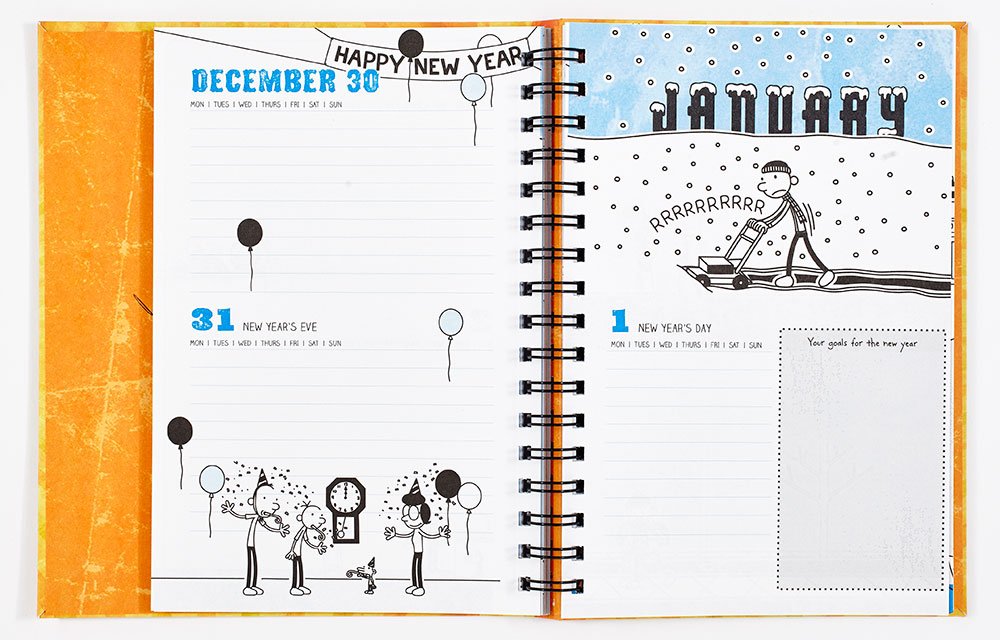 HAPPY NEW YEAR
DECEMBER 30
MON | TUES | WED | THURS | FRI | SAT | SUN
31 NEW YEAR'S EVE
MON | TUES | WED | THURS | FRI | SAT | SUN
JANUARY
RRRRRRRRRR
1 NEW YEAR'S DAY
MON | TUES | WED | THURS | FRI | SAT | SUN
Your goals for the new year